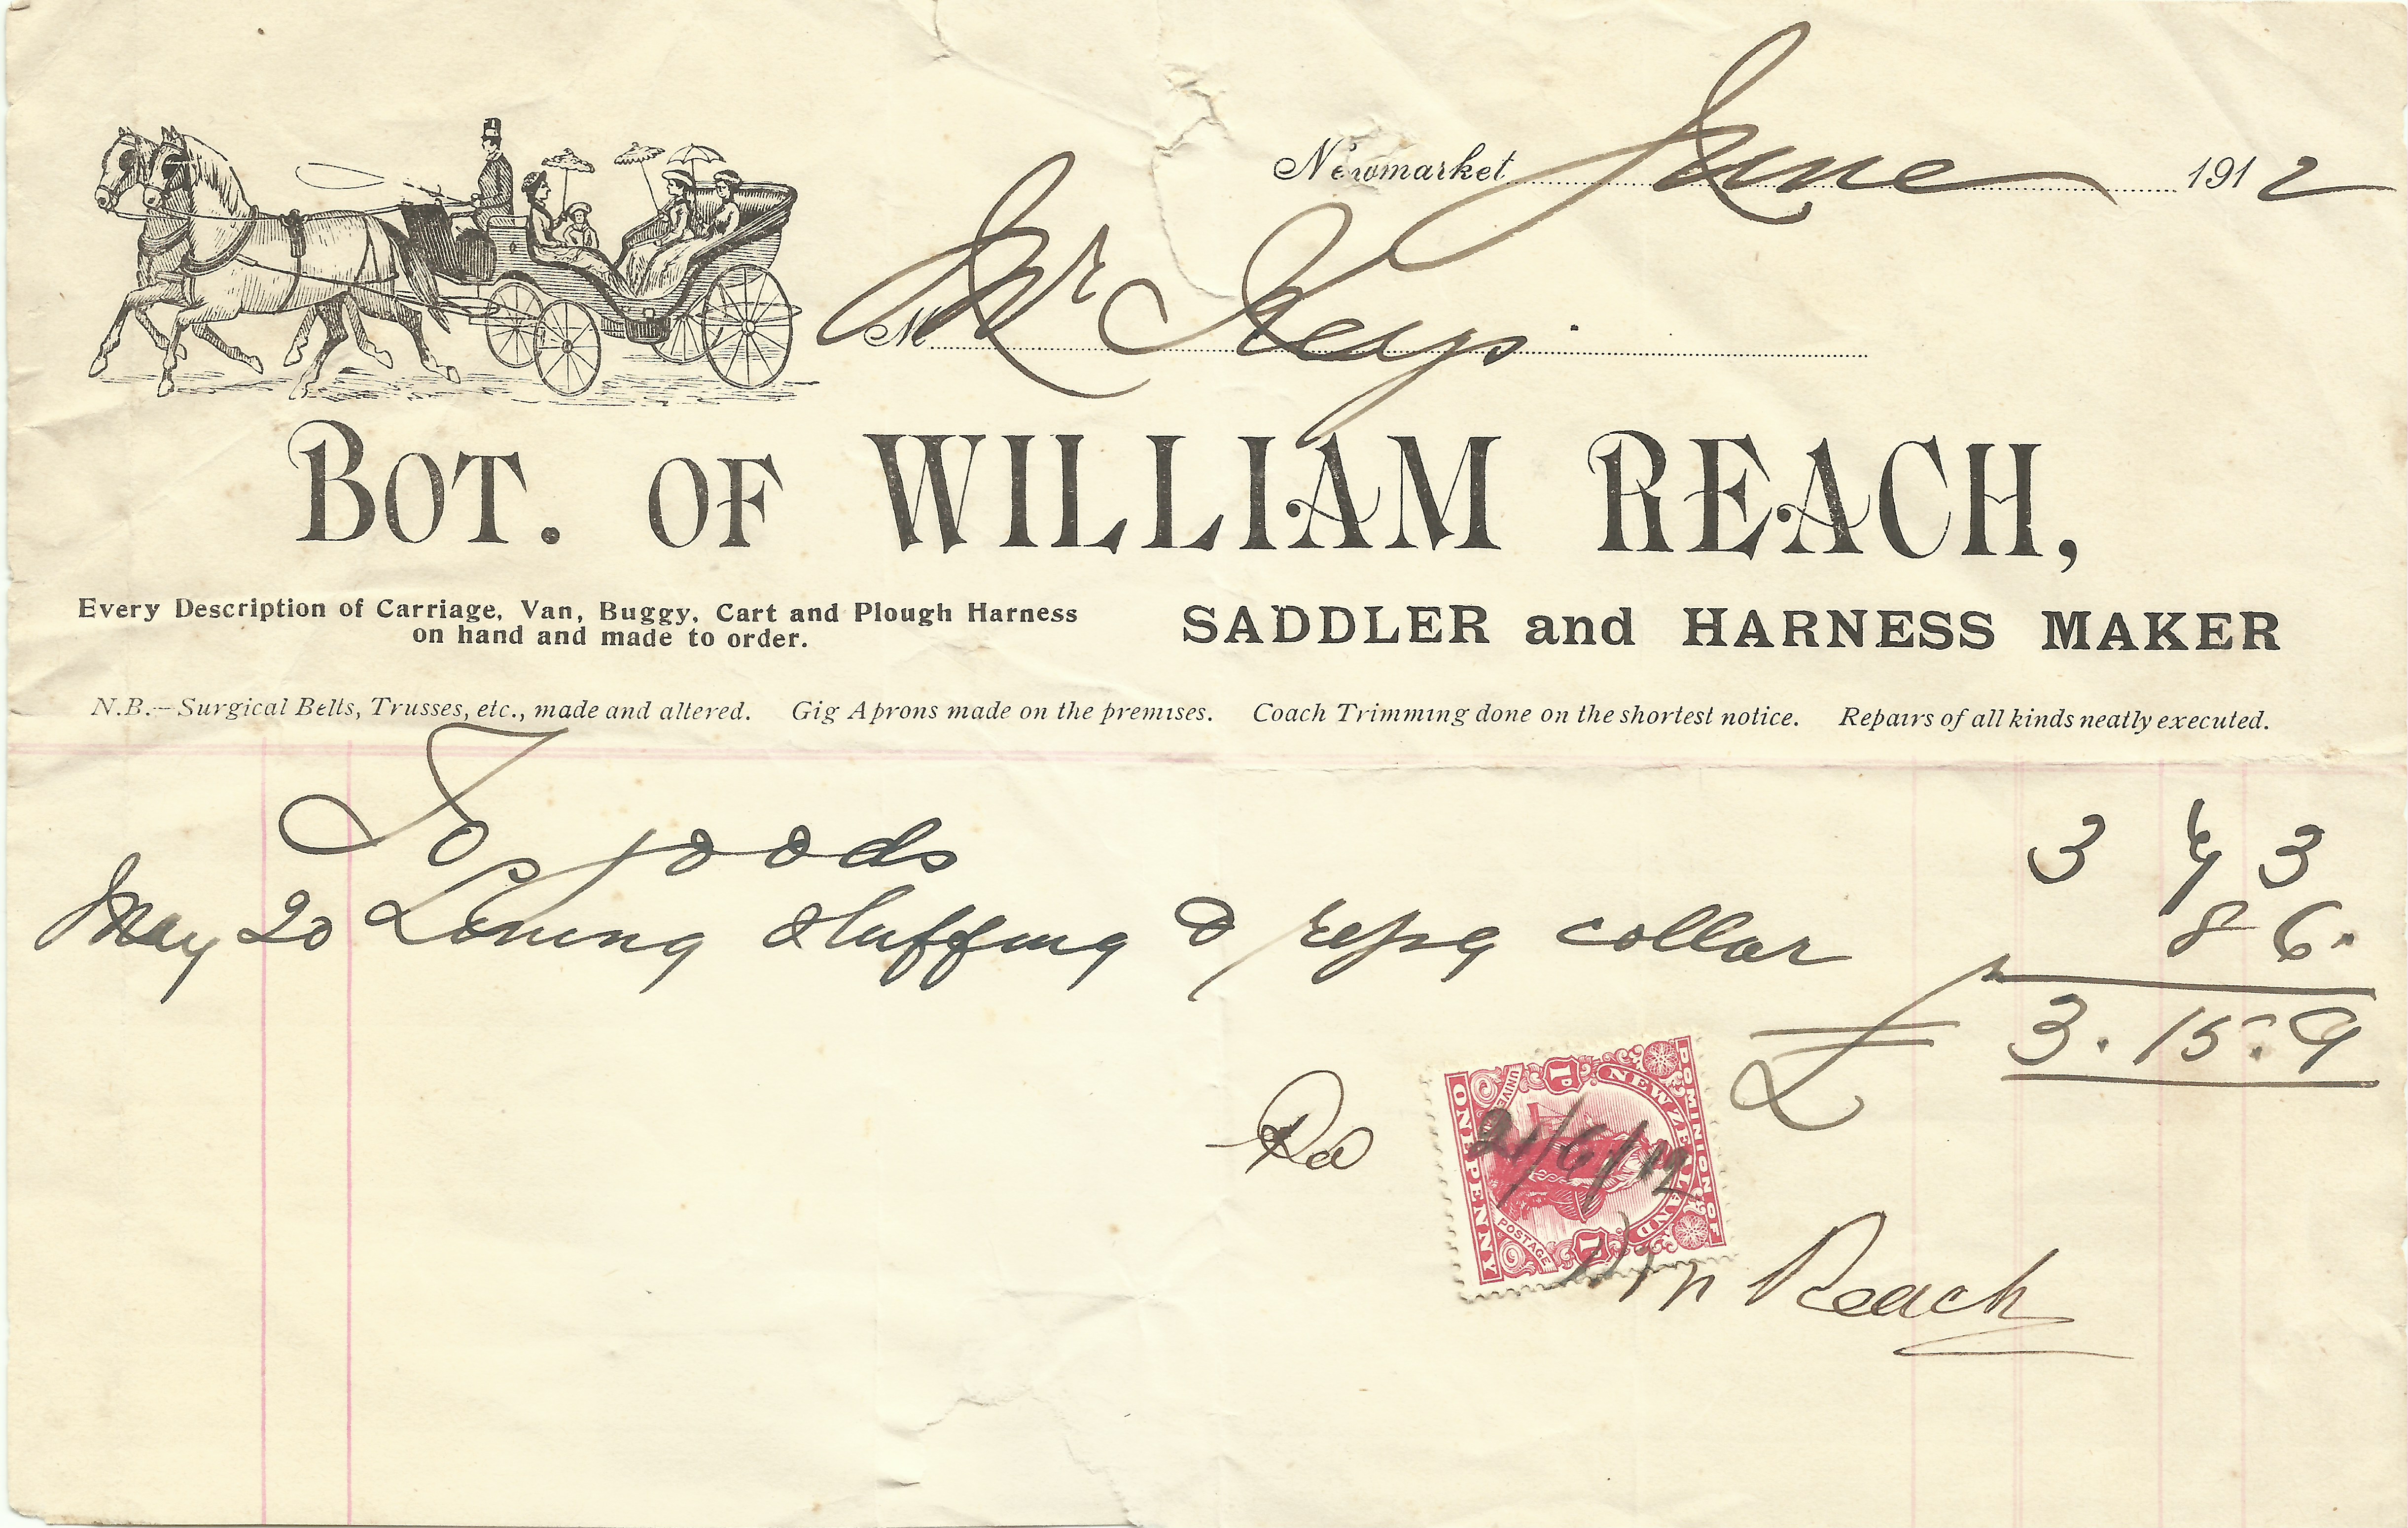 Newmarket June 1912
M Mr Keys
BOT. OF WILLIAM REACH,
Every Description of Carriage, Van, Buggy, Cart and Plough Harness
on hand and made to order.
SADDLER and HARNESS MAKER
N.B.—Surgical Belts, Trusses, etc., made and altered. Gig Aprons made on the premises. Coach Trimming done on the shortest notice. Repairs of all kinds neatly executed.
To goods 3 7 3
May 20 Lining stuffing & repg collar 8 6.
£ 3. 15. 9
Rd
DOMINION OF
NEW ZEALAND
POSTAGE
ONE PENNY
21/6/12
Wm Reach